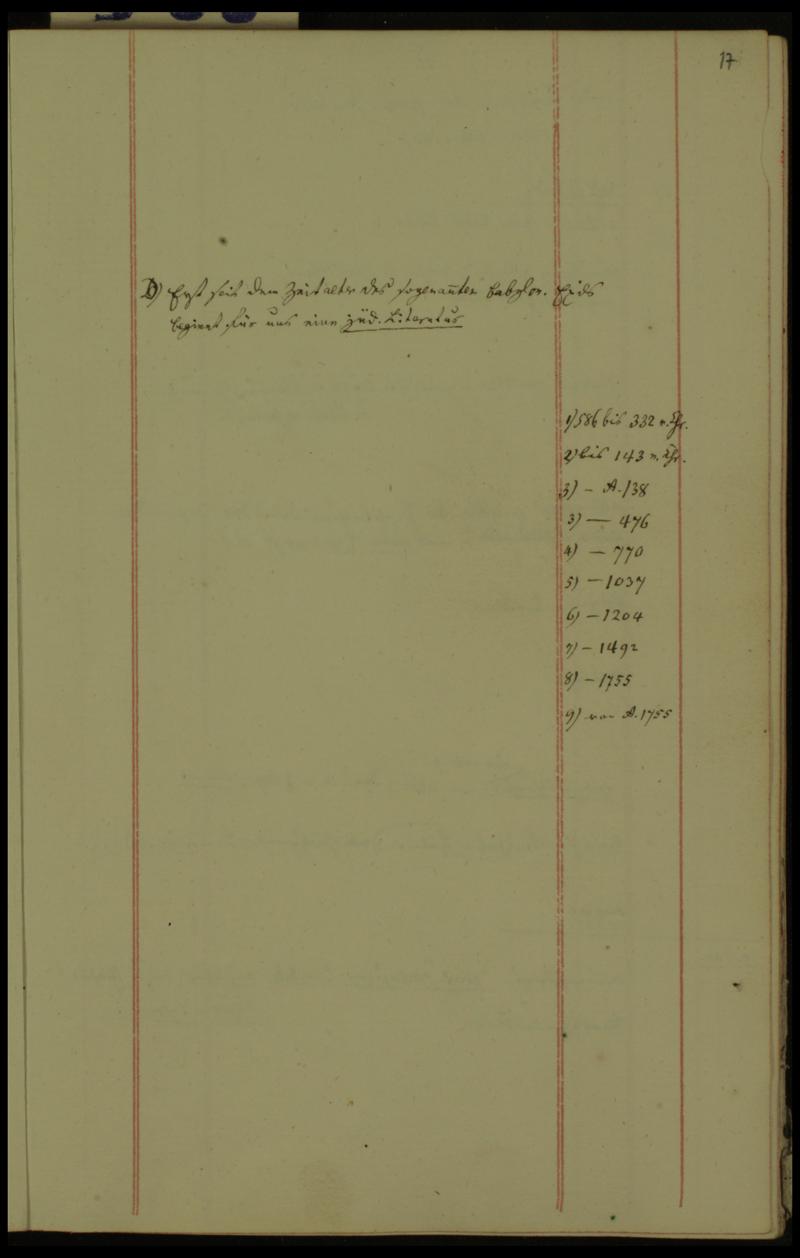 17
D) Erst seit dem Zeitalter des sogenan̄ten babylon. Exils
beginnt für uns eine jüd. Literatur
1) 586 bis 332 v. Chr.
2) bis 143 v. Chr.
3) – A. 138
3) — 476
4) — 770
5) — 1037
6) – 1204
7) – 1492
8) – 1755
9) von A. 1755